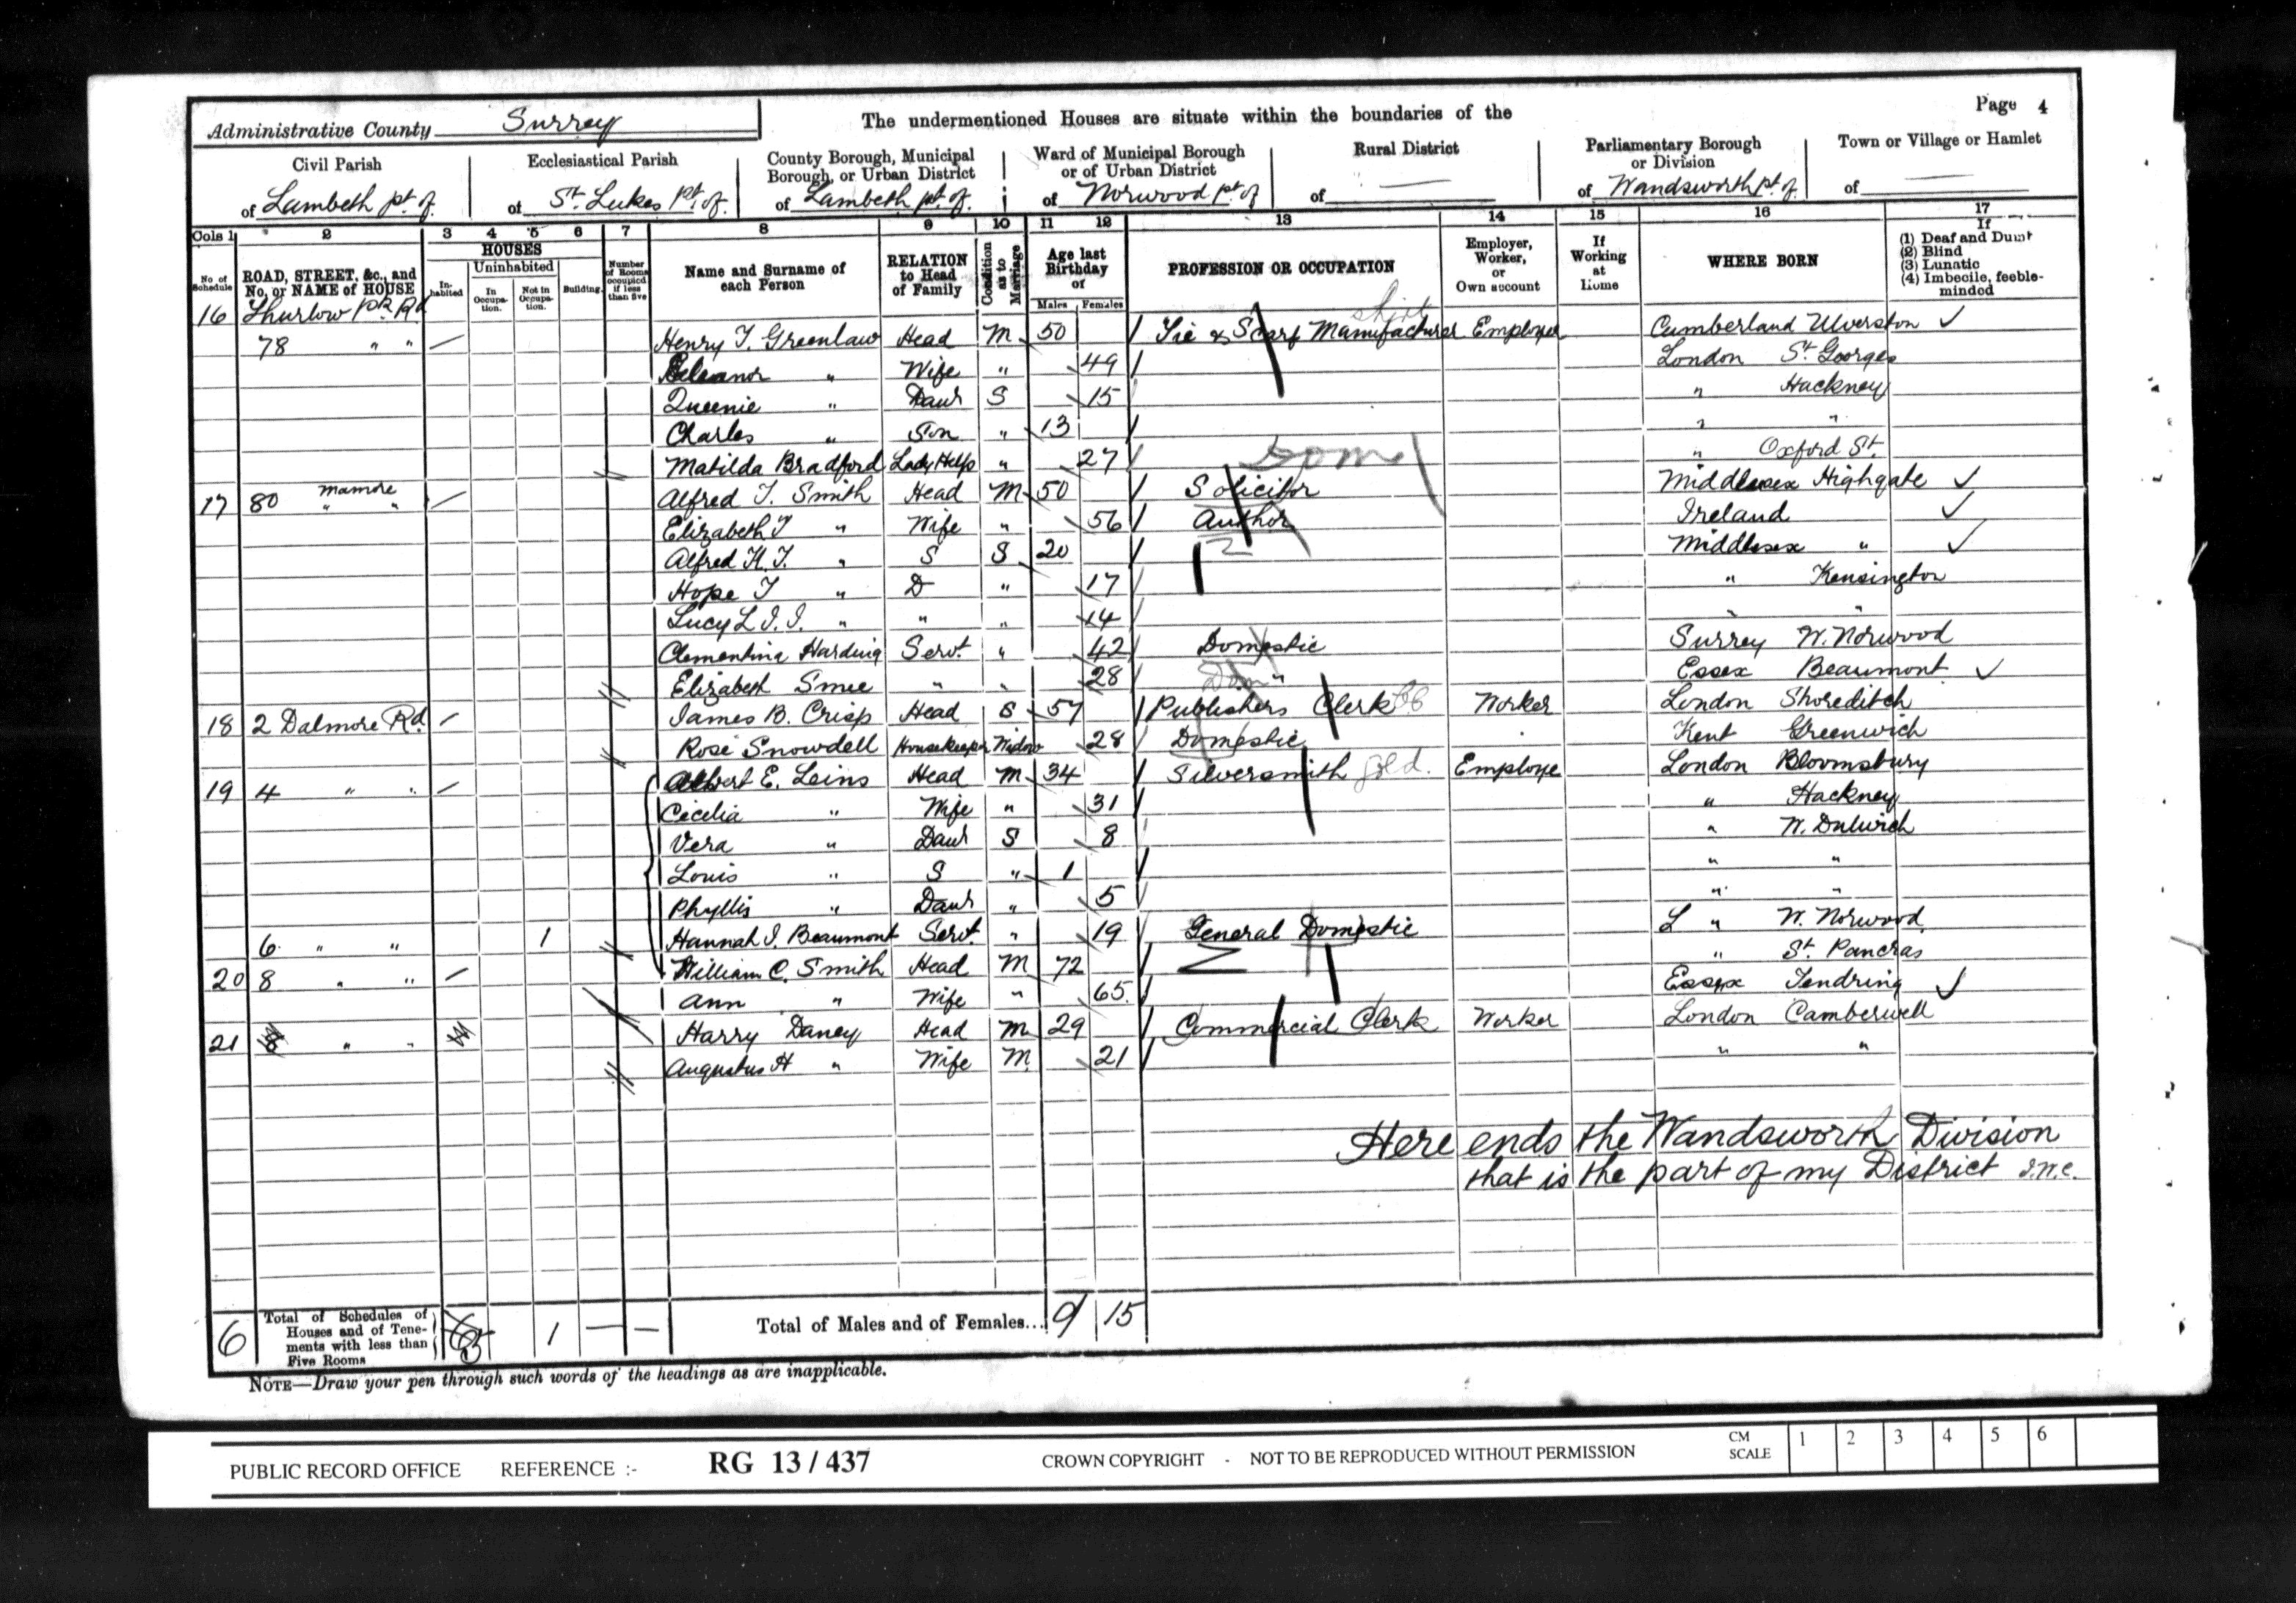 Page 4
Administrative County Surrey
The undermentioned Houses are situate within the boundaries of the
Civil Parish
of Lambeth pt. of
Ecclesiastical Parish
of St. Lukes Pt. of.
County Borough, Municipal Borough, or Urban District
of Lambeth pt. of.
Ward of Municipal Borough or of Urban District
of Norwood pt of
Rural District
of
Parliamentary Borough or Division
of Wandsworth pt. of.
Town or Village or Hamlet
of
Cols 1 2 3 4 5 6 7 8 9 10 11 12 13 14 15 16 17
No. of Schedule
ROAD, STREET, &c., and No. or NAME of HOUSE
HOUSES
In-habited
Uninhabited
In Occupa-tion.
Not in Occupa-tion.
Building.
Number of Rooms occupied if less than five
Name and Surname of each Person
RELATION to Head of Family
Condition as to Marriage
Age last Birthday of
Males Females
PROFESSION OR OCCUPATION
Employer, Worker, or Own account
If Working at Home
WHERE BORN
If
(1) Deaf and Dumb
(2) Blind
(3) Lunatic
(4) Imbecile, feeble-minded
16 Thurlow Pk Rd
shirt
78 " " Henry T. Greenlaw Head M 50 Tie & Scarf Manufacturer Employer Cumberland Ulverston
Eleanor " Wife " 49 London St. Georges
Queenie " Daur S 15 " Hackney
Charles " Son " 13 " "
Matilda Bradford Lady Help " 27 " Oxford St.
17 80 " " Alfred T. Smith Head M 50 Solicitor Middlesex Highgate
Elizabeth T " Wife " 56 Author Ireland
Alfred H. T. " S S 20 Middlesex "
Hope T " D " 17 " Kensington
Lucy L. T. T. " " " 14 " "
Clementina Harding Servt. " 42 Domestic Surrey W. Norwood
Elizabeth Smee " " 28 Dom " Essex Beaumont
18 2 Dalmore Rd. James B. Crisp Head S 57 Publishers Clerk Worker London Shoreditch
Rose Snowdell Housekeeper Widow 28 Domestic Kent Greenwich
19 4 " " Albert E. Leins Head M 34 Silversmith gold. Employe London Bloomsbury
Cecilia " Wife " 31 " Hackney
Vera " Daur S 8 " W. Dulwich
Louis " S " 1 " "
Phyllis " Daur " 5 " "
6 " " 1 Hannah J. Beaumont Servt. " 19 General Domestic L " W. Norwood
20 8 " " William C. Smith Head M 72 " St. Pancras
Ann " Wife " 65 Essex Tendring
21 8 " " Harry Daney Head M 29 Commercial Clerk Worker London Camberwell
Augustus H " Wife M 21 " "
Here ends the Wandsworth Division
that is the part of my District
6 Total of Schedules of Houses and of Tene-ments with less than Five Rooms 5 1 — — Total of Males and of Females... 9 15
NOTE—Draw your pen through such words of the headings as are inapplicable.
PUBLIC RECORD OFFICE REFERENCE :- RG 13 / 437 CROWN COPYRIGHT - NOT TO BE REPRODUCED WITHOUT PERMISSION CM SCALE 1 2 3 4 5 6